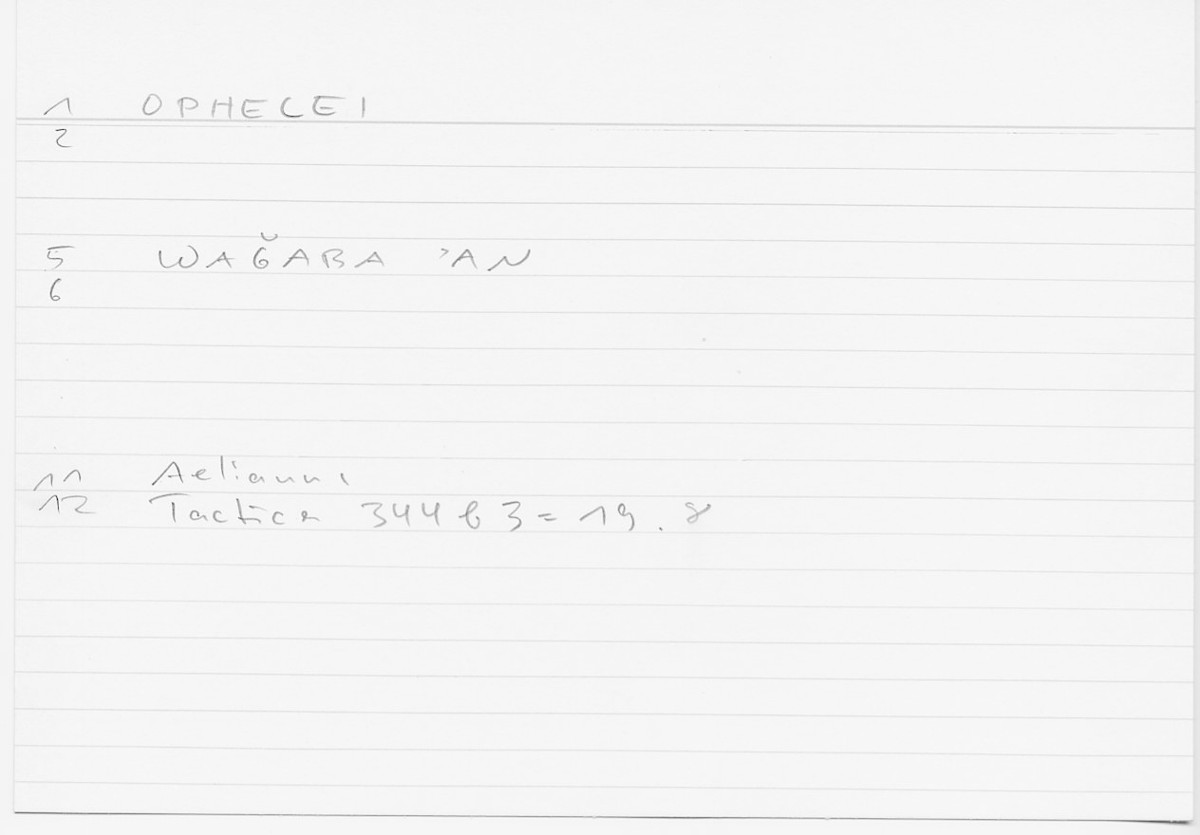 1 OPHELEI
2
5 WAĞABA ʾAN
6
11 Aelianus
12 Tactica 344 b 3 = 19. 8